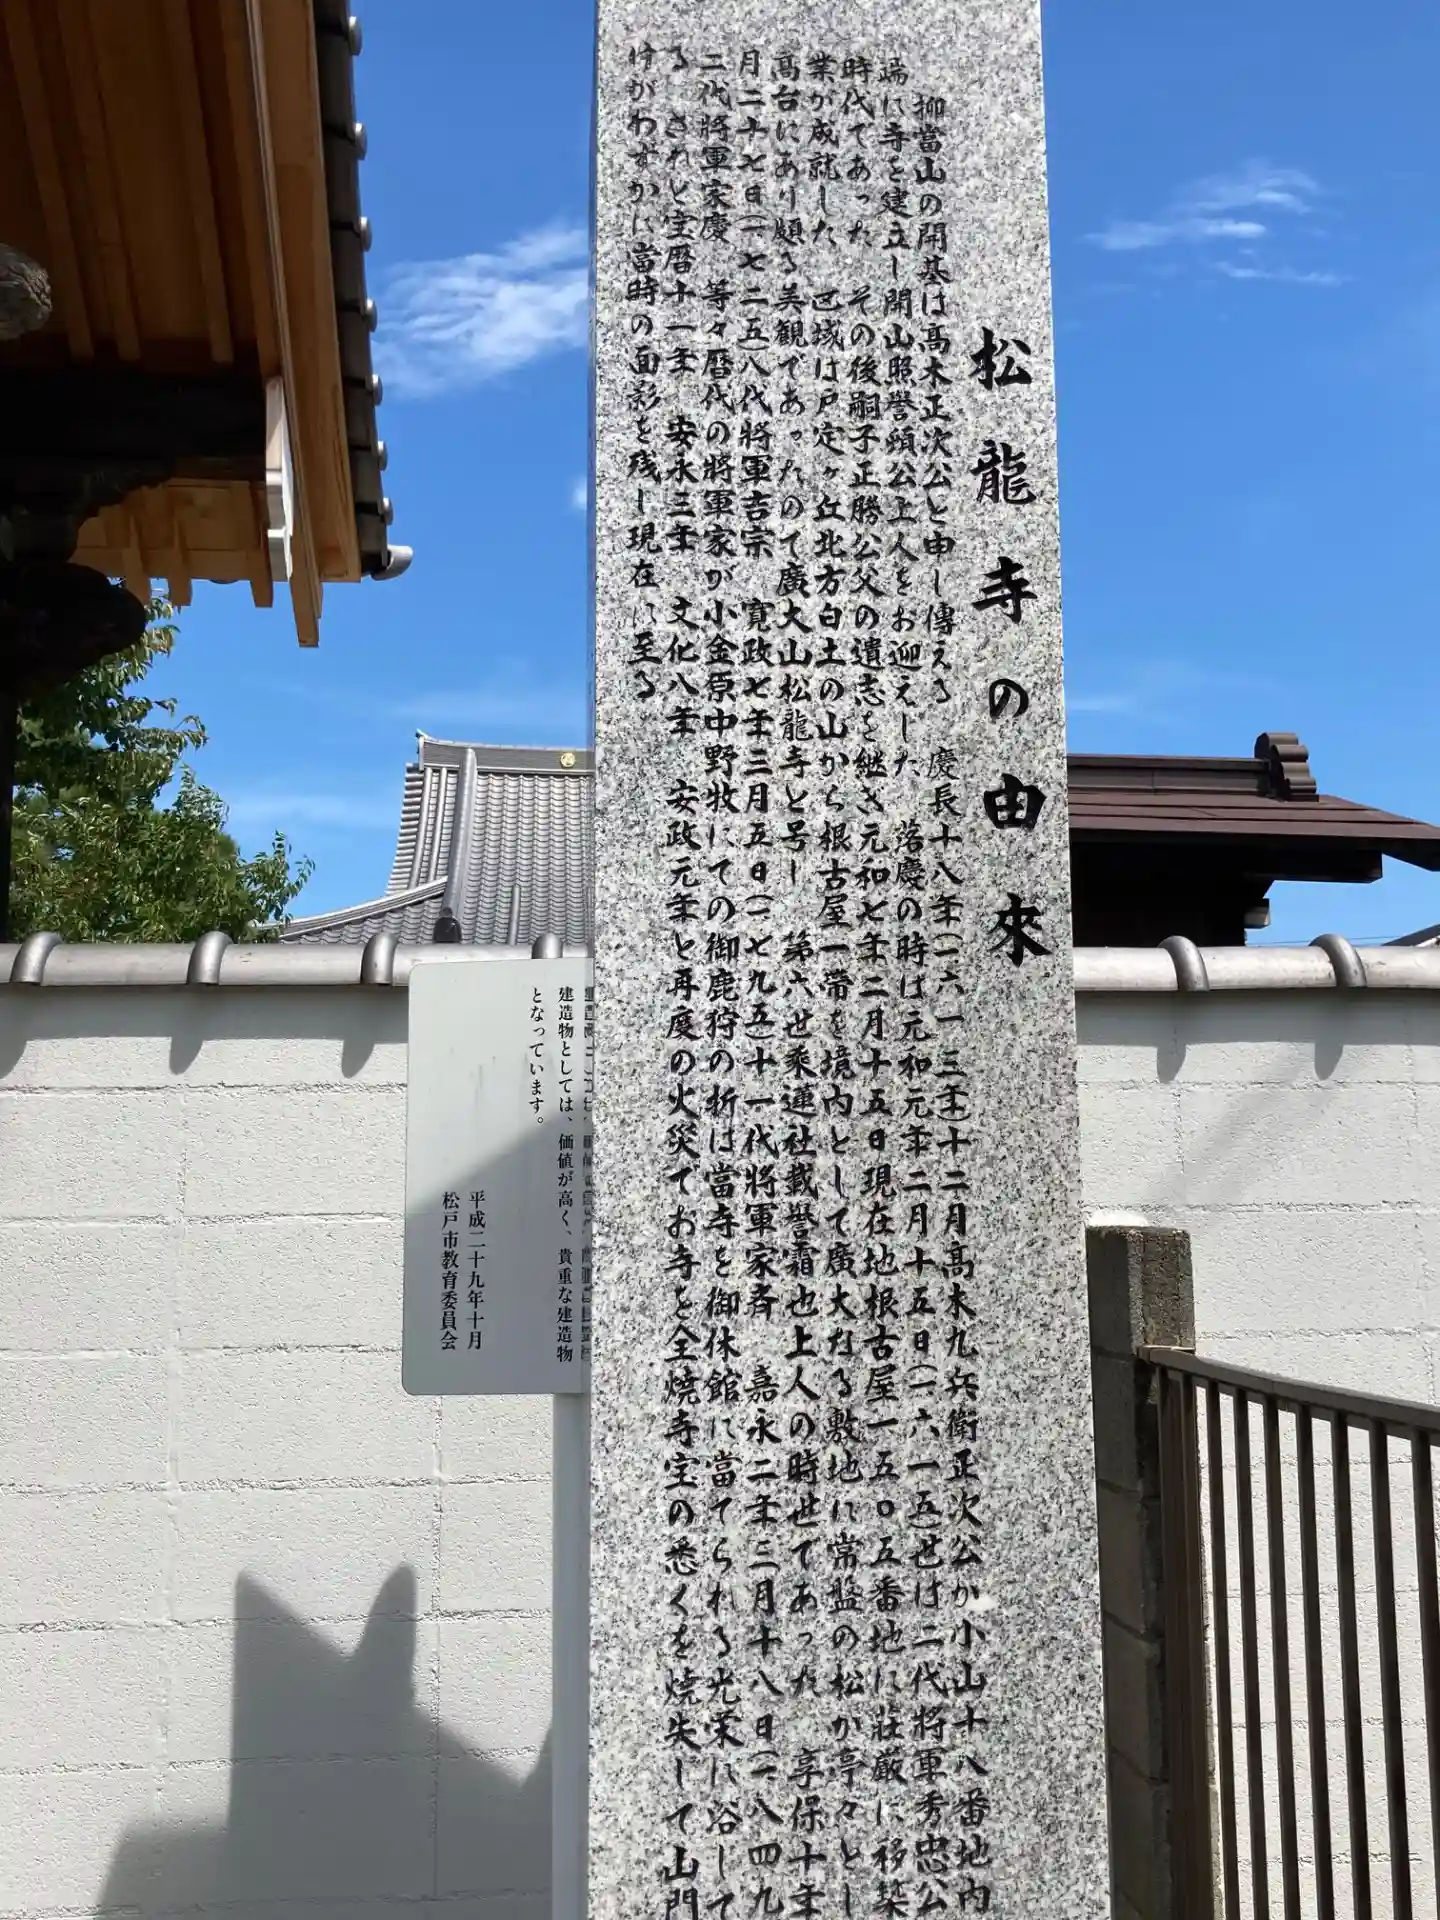 松龍寺の由來
柳當山の開基は髙木正次公と申し傳える 慶長十八年(一六一三年)十二月髙木九兵衛正次公が小山十八番地内
端に寺を建立し開山照誉頭公上人をお迎えした 落慶の時は元和元年二月十五日(一六一五)世は二代将軍秀忠公
時代であった その後嗣子正勝公父の遺志を継ぎ元和七年二月十五日現在地根古屋一五〇五番地に莊厳に移築
業が成就した 区域は戸定ヶ丘北方白土の山から根古屋一帯を境内として廣大なる敷地に常盤の松が亭々とし
髙台にあり頗る美観であったので廣大山松龍寺と号し 第六世乘蓮社載誉霜也上人の時世であった 享保十年
月二十七日(一七二五)八代將軍吉宗 寛政七年三月五日(一七九五)十一代將軍家斉 嘉永二年三月十八日(一八四九
二代將軍家慶 等々暦代の將軍家が小金原中野牧にての御鹿狩の折は當寺を御休館に當てられる光栄に浴して
る されど宝暦十一年 安永三年 文化八年 安政元年と再度の火災でお寺を全燒寺宝の悉くを焼失して山門
けがわずかに當時の面影を残し現在に至る
建造物としては、価値が高く、貴重な建造物
となっています。
平成二十九年十月
松戸市教育委員会